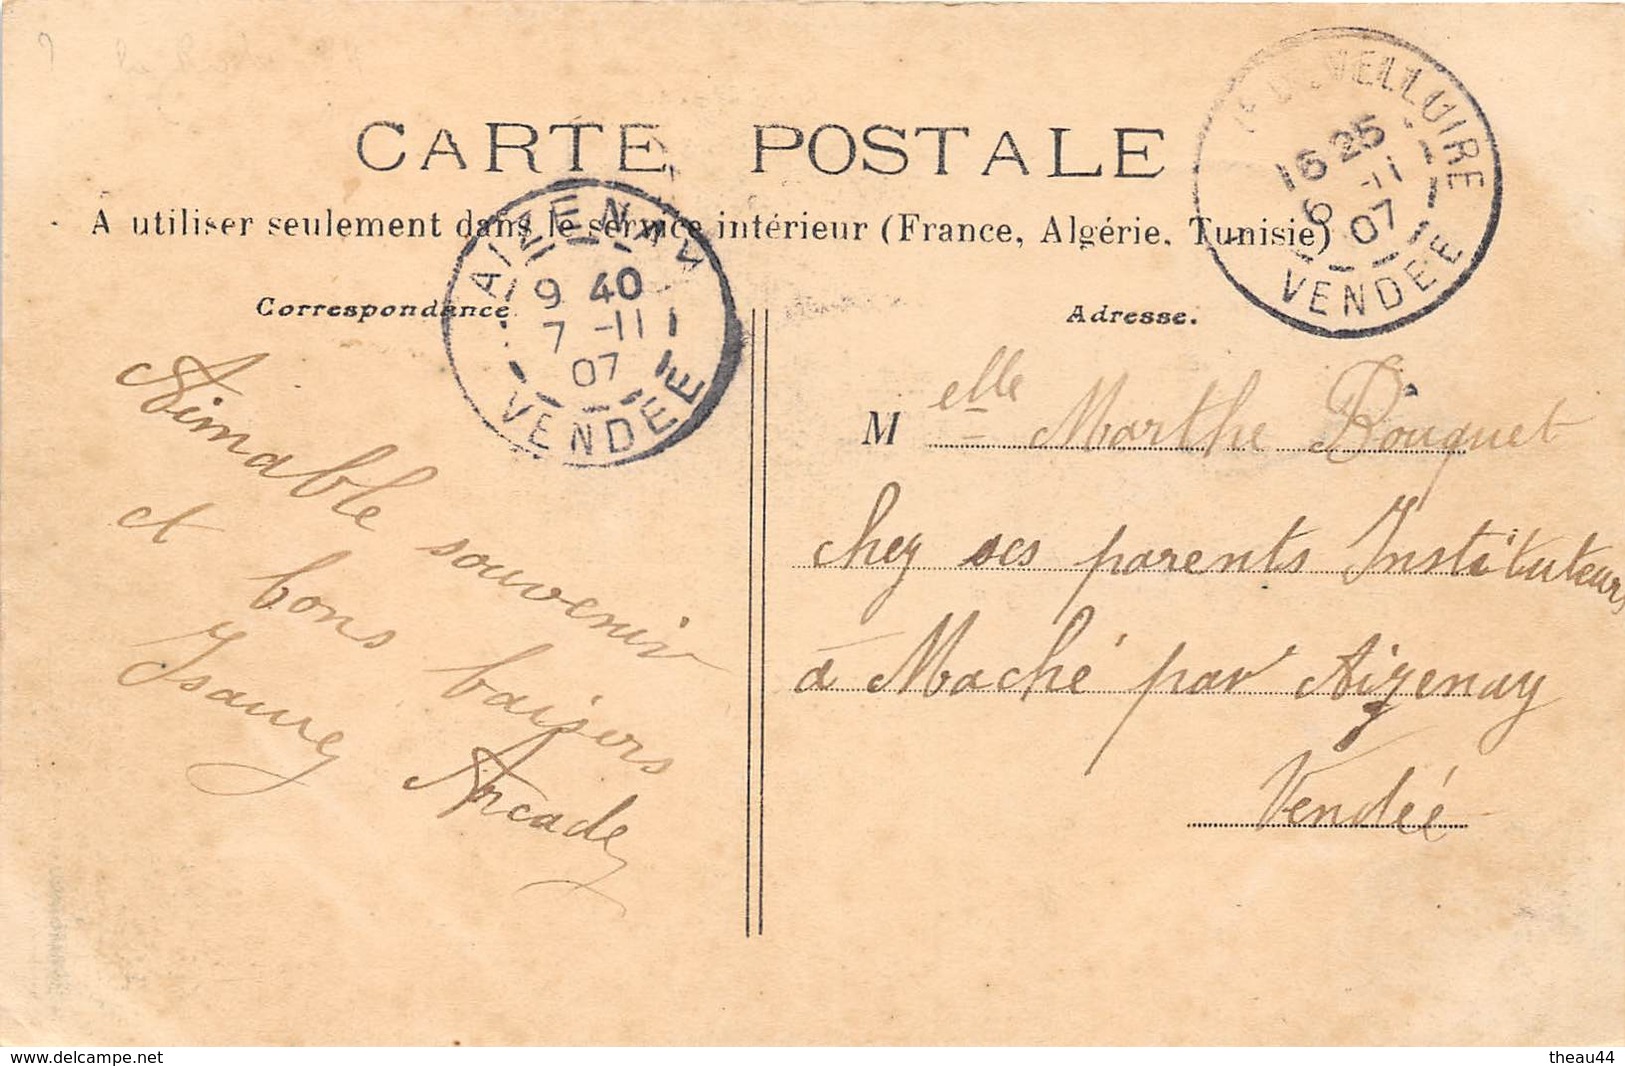 CARTE POSTALE
A utiliser seulement dans le service intérieur (France, Algérie, Tunisie)
VELLUIRE
16 25
6 -11
07
VENDEE
AIZENAY
9 40
7 -11
07
VENDEE
Correspondance
Aimable souvenir
et bons baisers
Isaure Arcade
Adresse.
Melle Marthe Bouquet
chez ses parents Instituteurs
à Maché par Aizenay
Vendée
www.delcampe.net
theau44